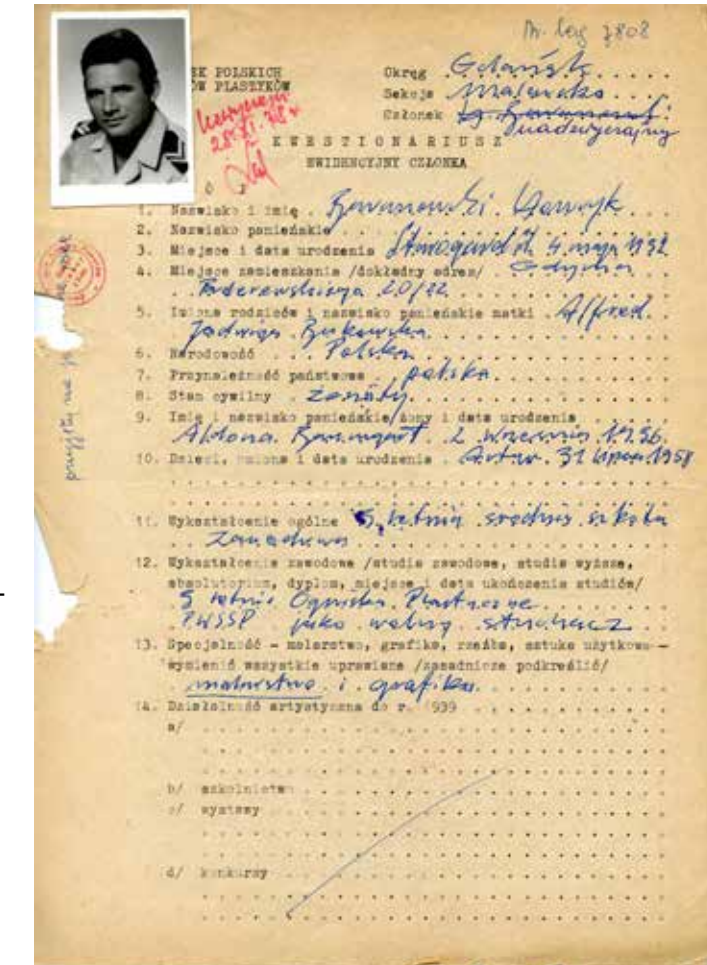 Nr. leg 7808
EK POLSKICH
W PLASTYKÓW
Okręg . Gdańsk . . . . .
Sekcja Malarska . . . .
Członek
nadzwyczajny
28.XI.
KWESTIONARIUSZ
EWIDENCYJNY CZŁONKA
1. Nazwisko i imię . Henryk . . .
2. Nazwisko panieńskie . . .
3. Miejsce i data urodzenia Starogard 4. maja 1932
4. Miejsce zamieszkania /dokładny adres/ . Gdynia
. . Paderewskiego 20/22
5. Imiona rodziców i nazwisko panieńskie matki . Alfred.
Jadwiga . Bukowska
6. Narodowość . . . Polska
7. Przynależność państwowa . polska
8. Stan cywilny . żonaty
9. Imię i nazwisko panieńskie/żony i data urodzenia
Aldona . Baumgart . 2 września 1936
10. Dzieci, imiona i data urodzenia . Artur . 31 lipca 1958
11. Wykształcenie ogólne 5. letnia średnia szkoła
. . zawodowa
12. Wykształcenie zawodowe /studia zawodowe, studia wyższe,
absolutorium, dyplom, miejsce i data ukończenia studiów/
5 letnie Ognisko Plastyczne
PWSSP jako wolny słuchacz
13. Specjalność - malarstwo, grafika, rzeźba, sztuka użytkowa -
wymienić wszystkie uprawiane /zasadnicze podkreślić/
malarstwo . i . grafika
14. Działalność artystyczna do r. 1939
a/
b/ szkolnictwo
c/ wystawy
d/ konkursy
przyjęty na